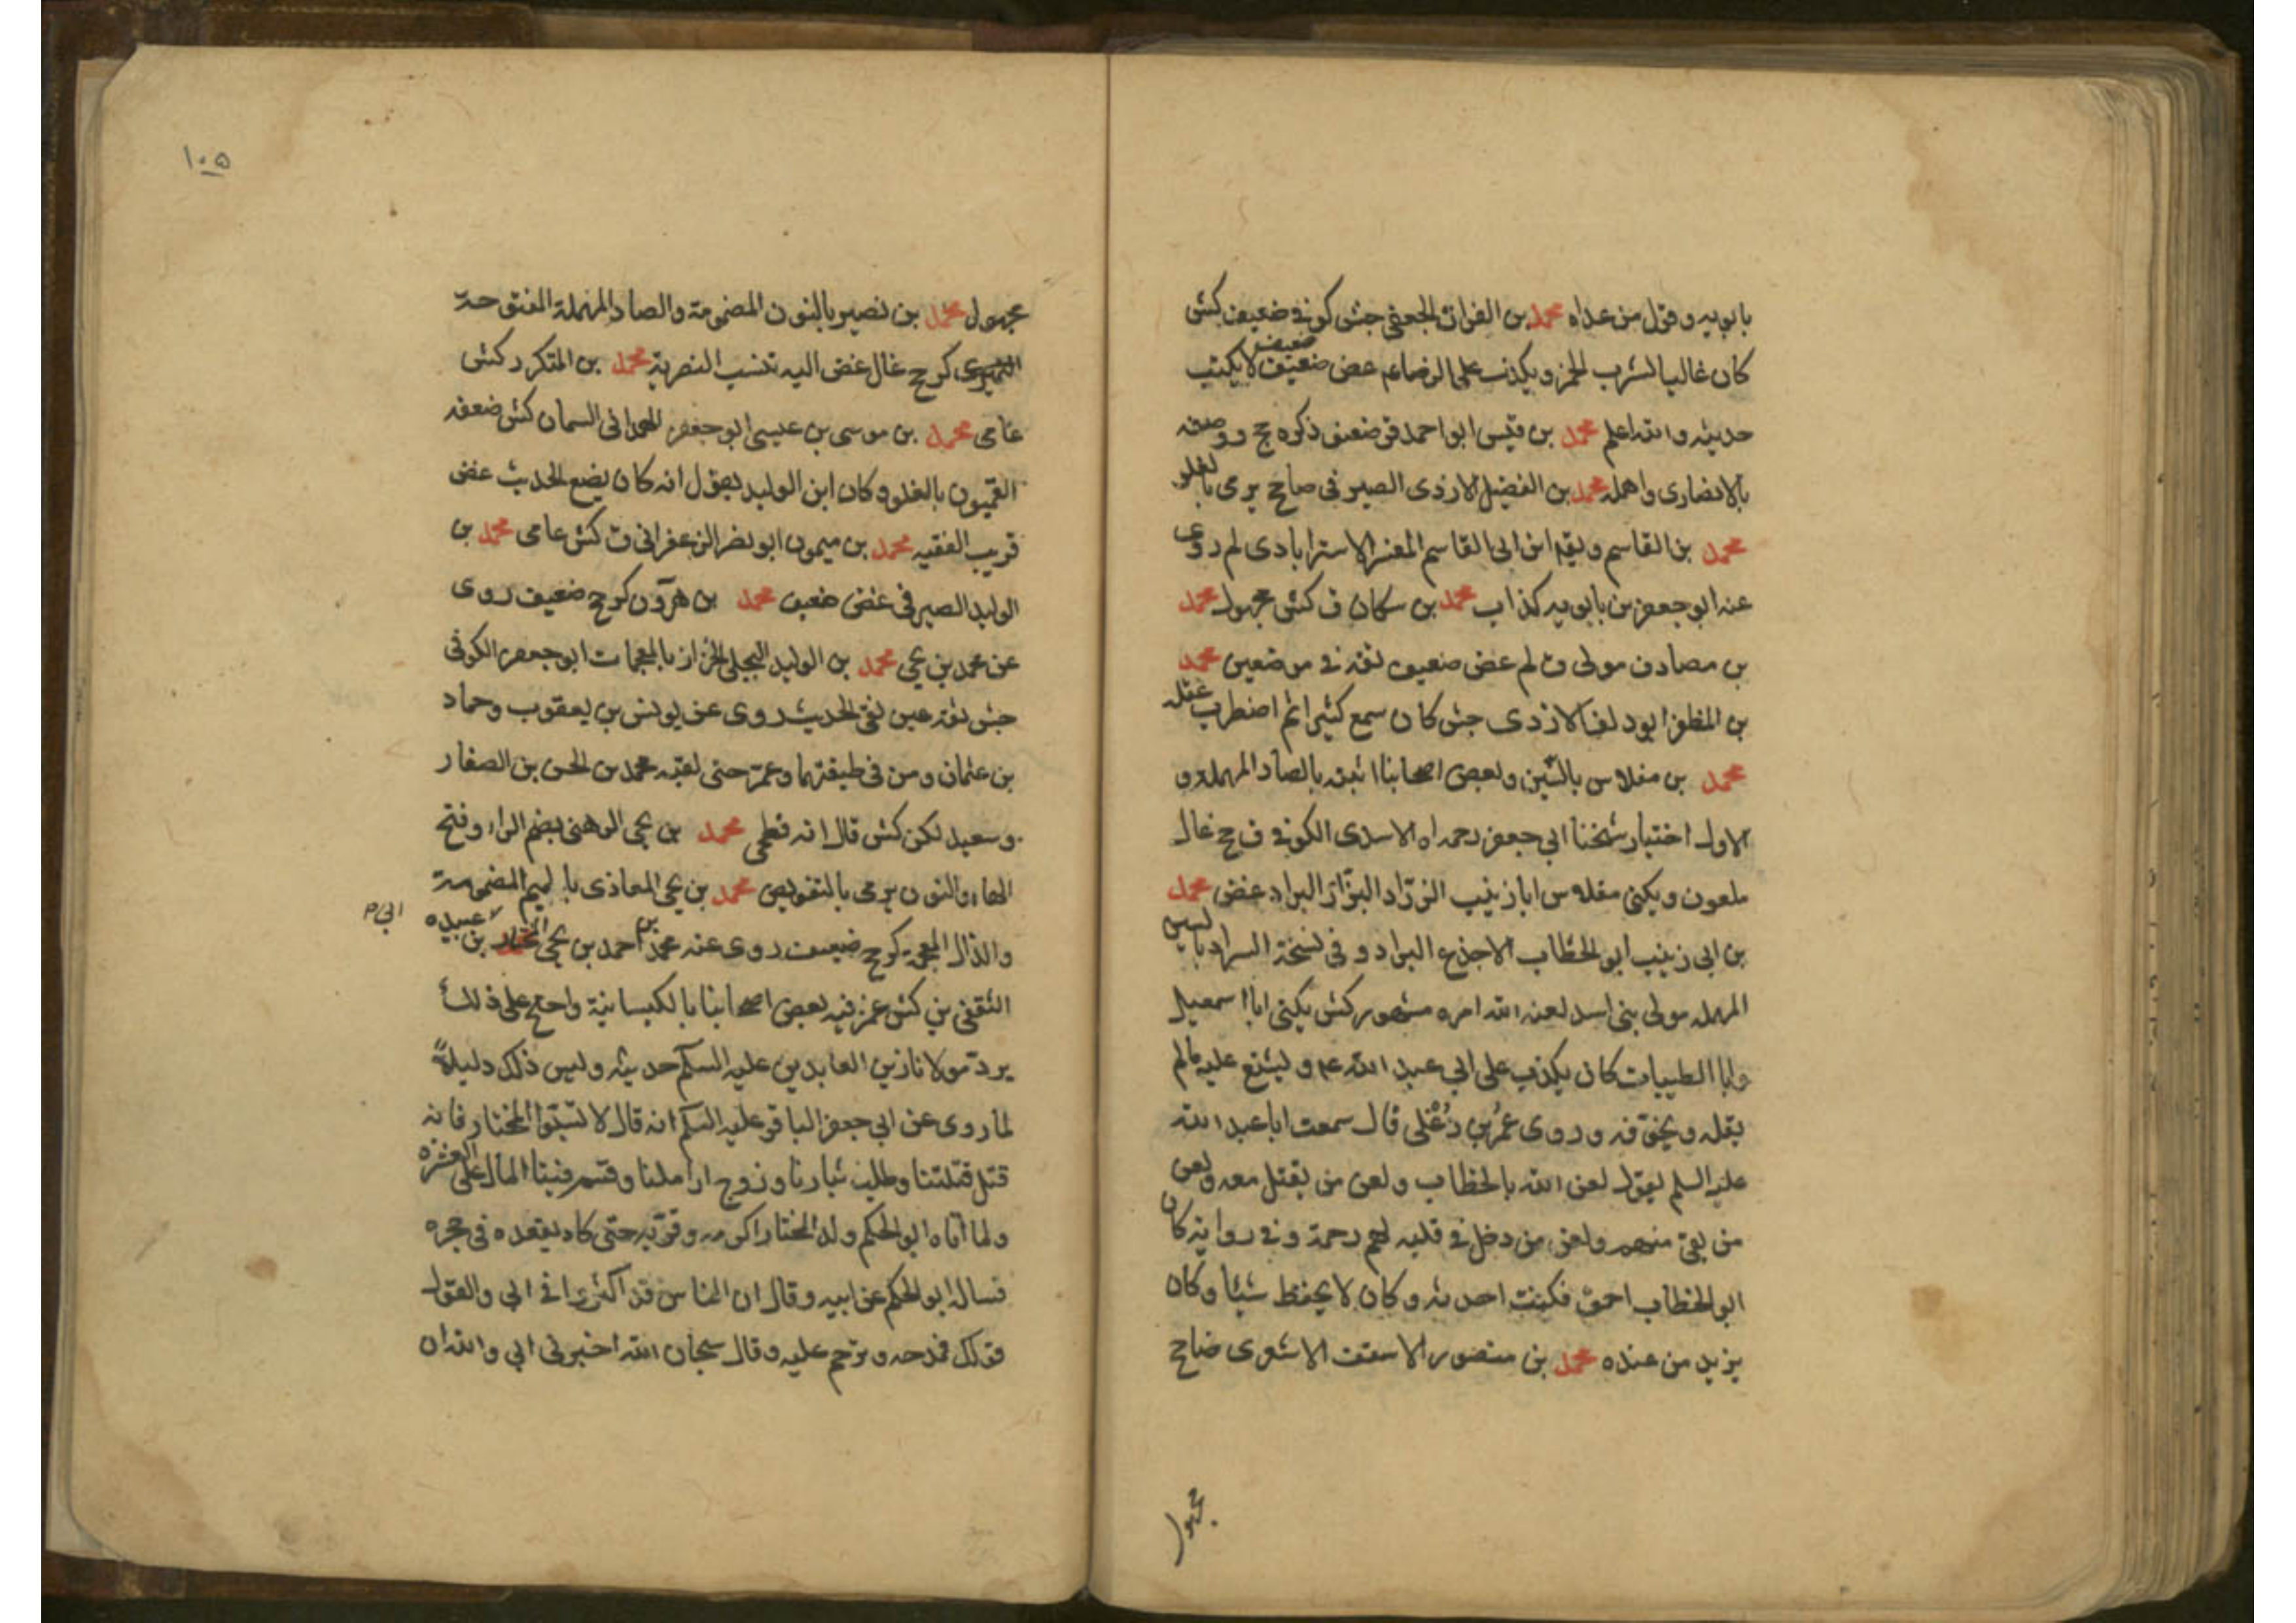 بابويه وقول من عداه محمد بن الفرات الجعفي جش كوفي ضعيف كش
كان غاليا لشرب الخمر ويكذب على الرضا عم غض ضعيف ضعيف لا يكتب
حديثه والله اعلم محمد بن قيس ابو احمد قر ضعيف ذكره جخ ووصفه
بالانصارى واهمله محمد بن الفضيل الازدى الصيرفى ضا جخ يرمى بالغلو
محمد بن القاسم وليقه ابن ابى القاسم المفسر الاسترابادى لم روى
عنه ابو جعفر بن بابويه كذاب محمد بن سكان ق كش مجهول محمد
بن مصادف مولى ق لم غض ضعيف ثقة فى موضعين محمد
بن المظفر ابو دلف الازدى جش كان سمع كثيرا ثم اضطرب عقله
محمد بن مقلاس بالسين وبعض اصحابنا اثبته بالصاد المهملة و
الاول اختيار شيخنا ابى جعفر رحمه اه الاسدى الكوفى ق جخ غال
ملعون ويكنى مقلاس ابا زينب الزرّاد البزّاز البراد غض محمد
بن ابى زينب ابو الخطاب الاجذع البراد وفى نسخة السراد بالسين
المهملة مولى بنى اسد لعنه الله امره مشهور كش يكنى ابا اسمعيل
وابا الطيبات كان يكذب على ابى عبد الله عم ويشنع عليه مالم
يقله ويخوّفه وروى عمر بن دُغْلى قال سمعت ابا عبد الله
عليه السلم يقول لعن الله ابا الخطاب ولعن من يقتل معه ولعن
من بقى منهم ولعن من دخل فى قلبه لهم رحمة وفى رواية كان
ابو الخطاب احمق فكنت احدثه وكان لا يحفظ شيئا وكان
يزيد من عنده محمد بن منصور الاشعث الاشعرى ضا جخ
مجهول
١٠٥
مجهول محمد بن نصير بالنون المضمومة والصاد المهملة المفتوحة
النميرى كر جخ غال غض اليه تنسب النصرية محمد بن المنكدر كش
عامى محمد بن موسى بن عيسى ابو جعفر الهمدانى السمان كش ضعفه
القميون بالغلو وكان ابن الوليد يقول انه كان يضع الحديث غض
قريب الفقيه محمد بن ميمون ابو نضر الزعفرانى ق كش عامى محمد بن
الوليد الصيرفى غض ضعيف محمد بن هرون كر جخ ضعيف روى
عن محمد بن يحيى محمد بن الوليد البجلى الخزاز بالمعجمات ابو جعفر الكوفى
جش ثقة عين نقى الحديث روى عن يونس بن يعقوب وحماد
بن عثمان ومن فى طبقتهما وعمر حتى لقيه محمد بن الحسن بن الصفار
وسعيد لكن كش قال انه فطحى محمد بن يحيى الرهنى بضم الراء وفتح
الهاء والنون يرمى بالتفويض محمد بن يحيى المعاذى بالميم المضمومة
والذال المعجمة كر جخ ضعيف روى عنه محمد بن احمد بن يحيى المختار بن ابى عبيده
الثقفى ين كش غمز فيه بعض اصحابنا بالكيسانية واحتج على ذلك
يردّ مولانا زين العابدين عليه السلم حديثه وليس ذلك دليلاً
لما روى عن ابى جعفر الباقر عليه السلم انه قال لا تسبّوا المختار فانه
قتل قتلتنا وطلب بثارنا وزوج اراملنا وقسم فينا المال على العشره
ولما اتاه ابو الحكم ولد المختار اكرمه وقرّبه حتى كاد يقعده فى حجره
فساله ابو الحكم عن ابيه وقال ان الناس قد اكثروا فى ابى والقول
قولك فمدحه وترحم عليه وقال سبحان الله اخبرنى ابى والله ان